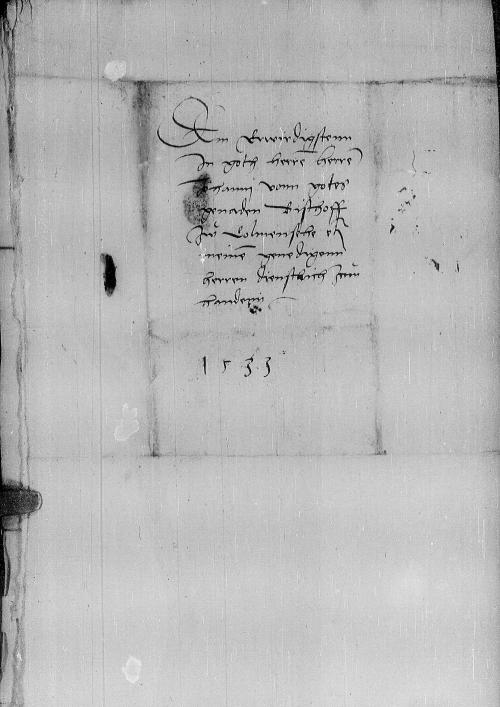 Am Erwirdigstenn
In goth herre herre
Johanni vonn gotes
genaden Bischoff
zu Colmensehe etc
meine genedigenn
herren dienstlich zuu
handenn
1533